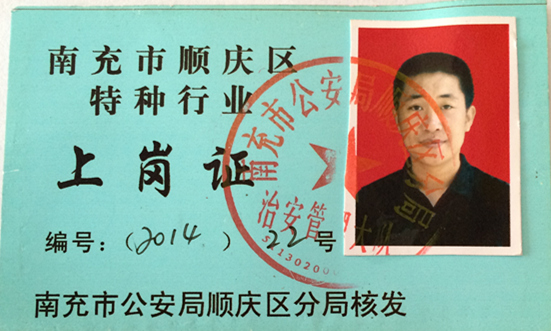 南充市顺庆区
特种行业
上岗证
编号：（2014）22号
南充市公安局顺庆区分局核发
南充市公安局顺庆
治安管
大队